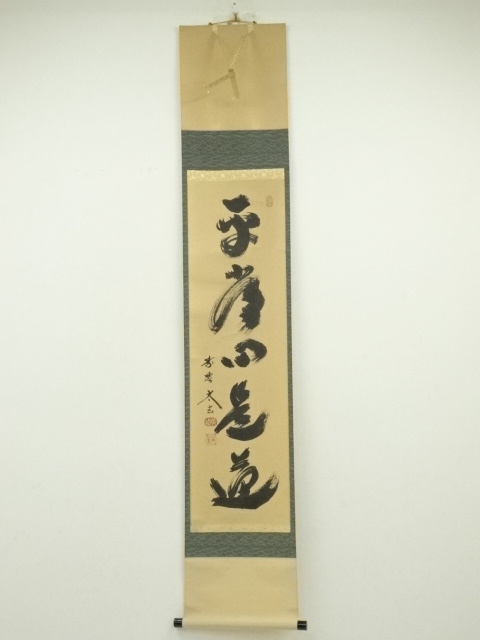 平常心是道